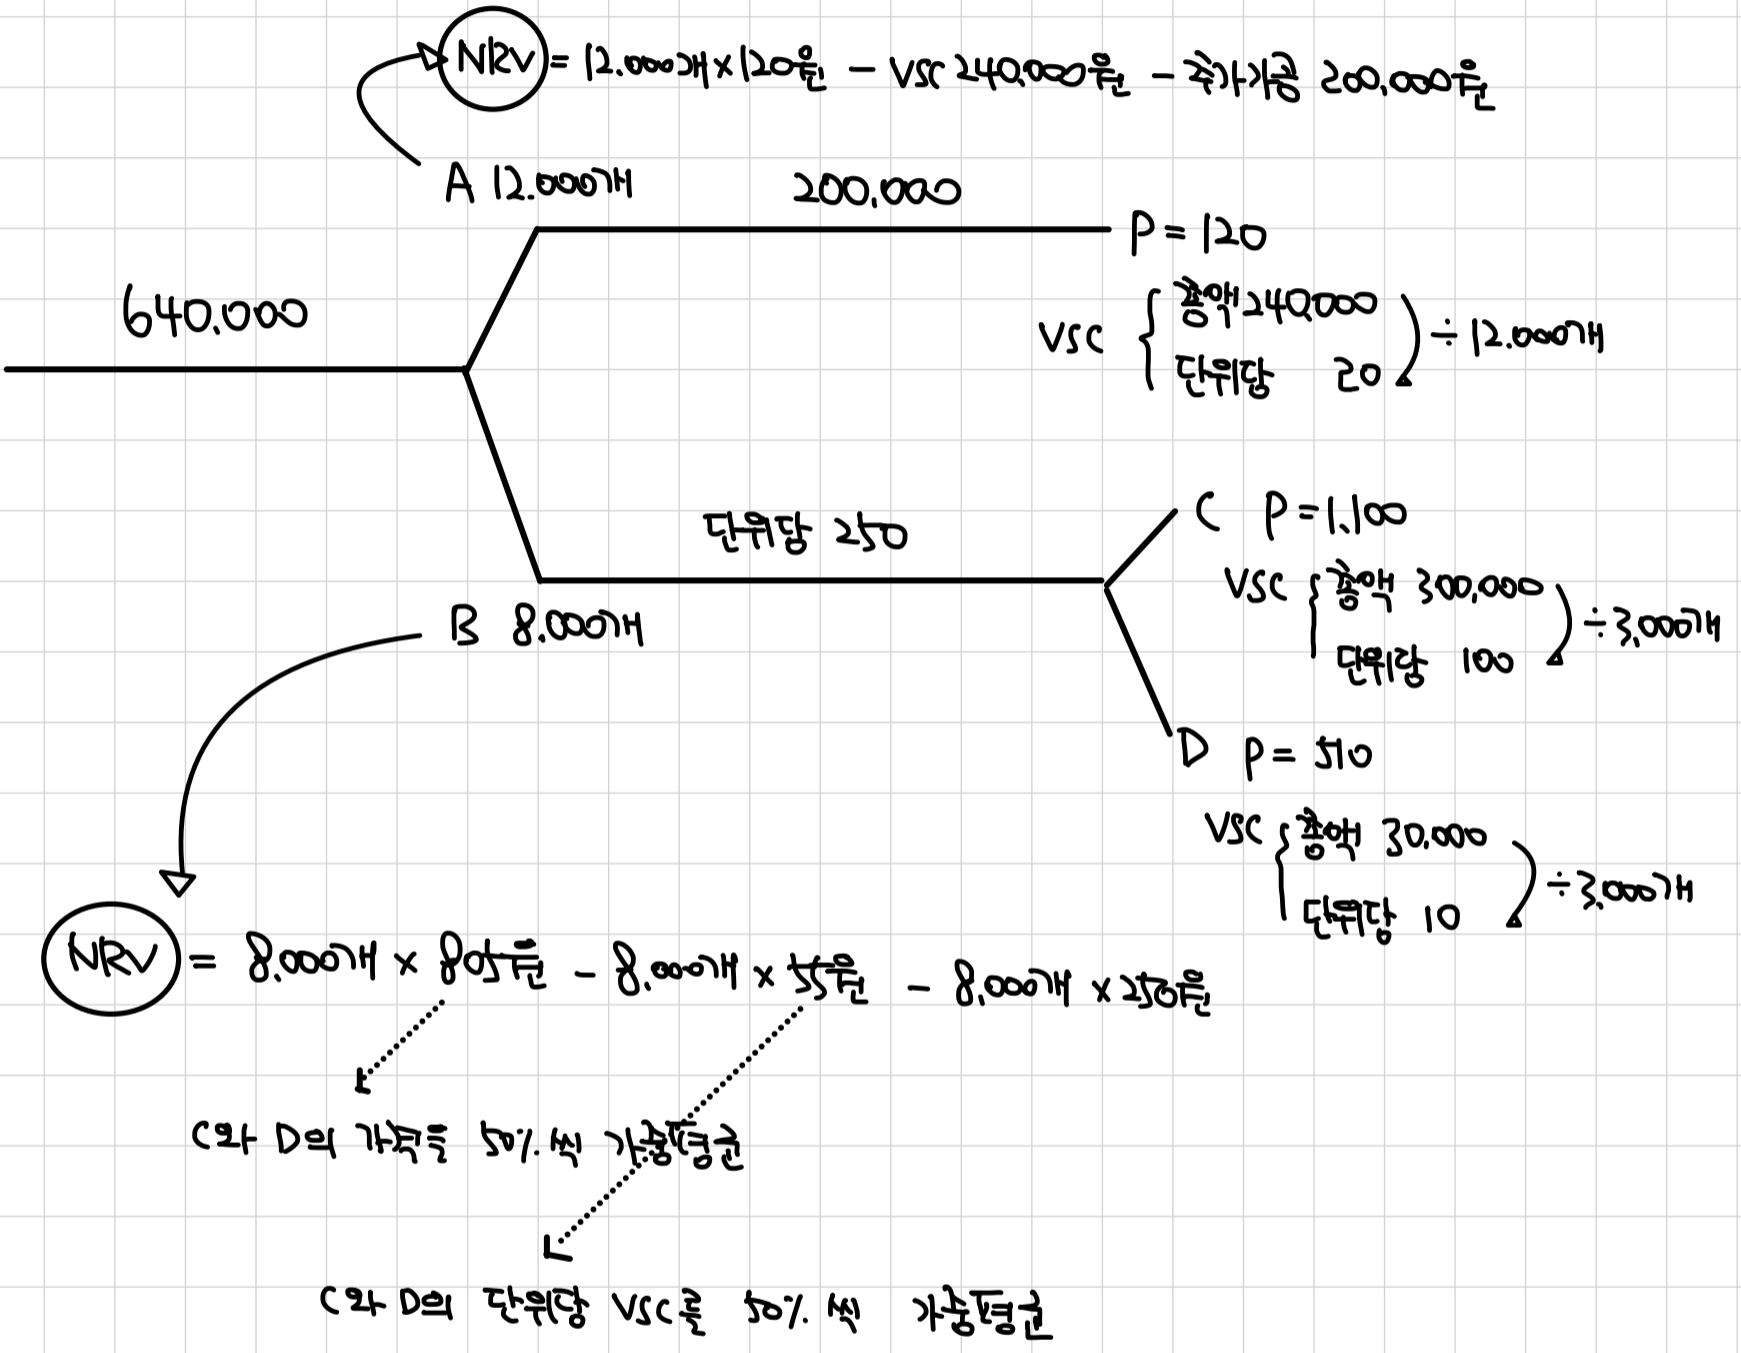 NRV = 12.000개 × 120원 - VSC 240.000원 - 추가가공 200.000원
A 12.000개
200.000
P = 120
640.000
VSC { 총액 240.000
단위당 20
÷ 12.000개
단위당 250
C P = 1.100
VSC { 총액 300.000
단위당 100
÷ 3.000개
B 8.000개
D P = 510
VSC { 총액 30.000
단위당 10
÷ 3.000개
NRV = 8.000개 × 805원 - 8.000개 × 55원 - 8.000개 × 250원
C와 D의 가격을 50% 씩 가중평균
C와 D의 단위당 VSC를 50% 씩 가중평균